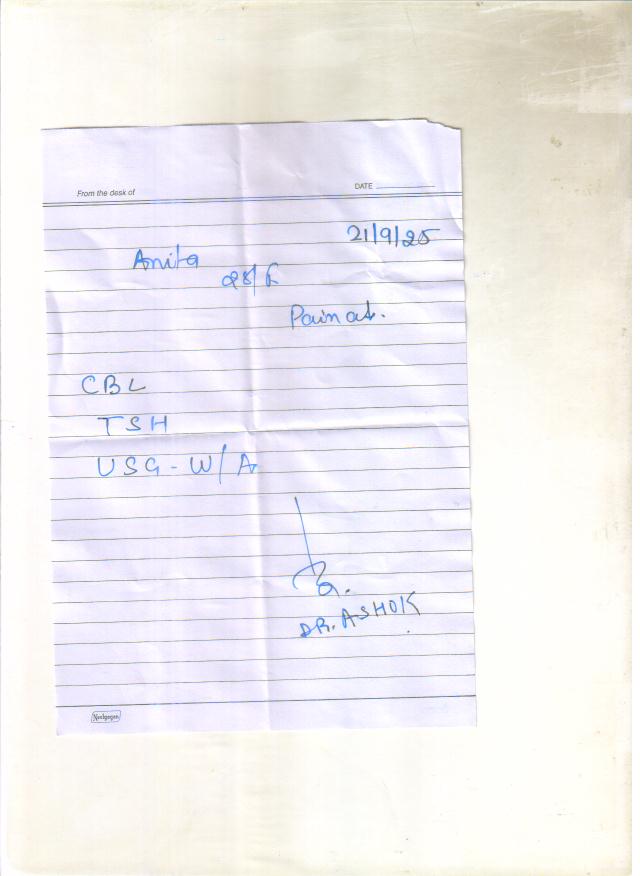 From the desk of
DATE
21/9/25
Anita
28/F
CBC
TSH
USG - W/A
DR. ASHOK
Neelgagan